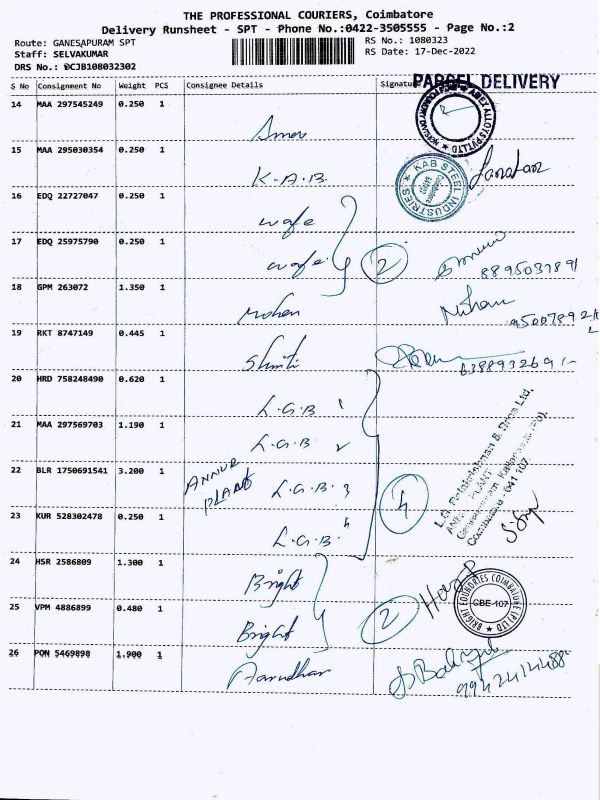 THE PROFESSIONAL COURIERS, Coimbatore
Delivery Runsheet - SPT - Phone No.:0422-3505555 - Page No.:2
Route: GANESAPURAM SPT
RS No.: 1080323
Staff: SELVAKUMAR
RS Date: 17-Dec-2022
DRS No.: DCJB108032302
PARCEL DELIVERY
S No Consignment No Weight PCS Consignee Details Signature
14 MAA 297545249 0.250 1
15 MAA 295030354 0.250 1 K.A.B.
KAB STEEL INDUSTRIES
Janathan
16 EDQ 22727047 0.250 1 wafe
17 EDQ 25975790 0.250 1 wafe 2
18 GPM 263072 1.350 1 Mohan
19 RKT 8747149 0.445 1 Shruti
20 HRD 758248490 0.620 1 L.G.B 1
21 MAA 297569703 1.190 1 L.G.B 2
22 BLR 1750691541 3.200 1 ANNUR PLANT L.G.B 3 4
L.G. Balakrishnan & Bros Ltd,
ANNUR PLANT
Coimbatore - 641 107.
23 KUR 528302478 0.250 1 L.G.B. 4
24 HSR 2586809 1.300 1 Bright
BRIGHT FOUNDRIES COIMBATORE (P) LTD
CBE-107
25 VPM 4886899 0.480 1 Bright 2
26 PON 5469898 1.900 1 Aarudhar
9942414488